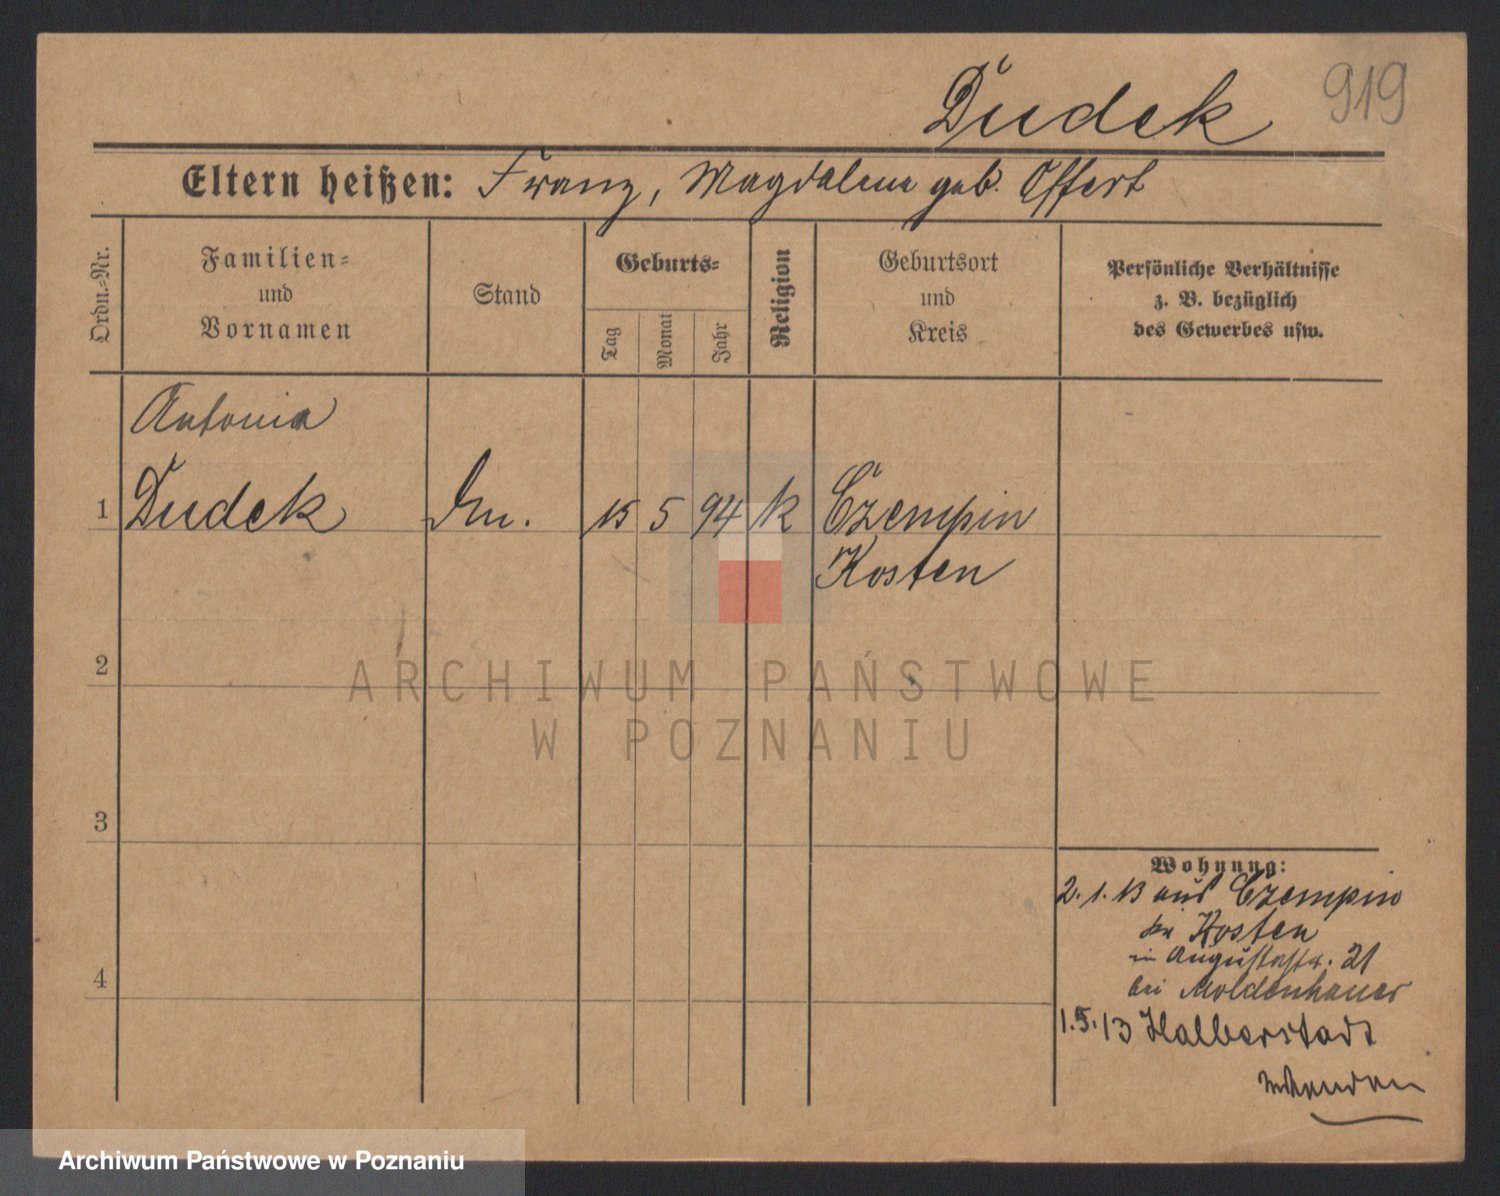 Dudek 919
Eltern heißen: Franz, Magdalena geb. Offert
Ordn.-Nr.
Familien-
und
Vornamen
Stand
Geburts-
Tag
Monat
Jahr
Religion
Geburtsort
und
Kreis
Persönliche Verhältnisse
z. B. bezüglich
des Gewerbes usw.
Antonia
1 Dudek 15 5 94 k Czempin
Kosten
2
3
4
Wohnung:
2. 1. 13 aus Czempin
Kosten
in Augustastr. 21
bei Moldenhauer
1.5.13 Halberstadt
ARCHIWUM PAŃSTWOWE
W POZNANIU
Archiwum Państwowe w Poznaniu